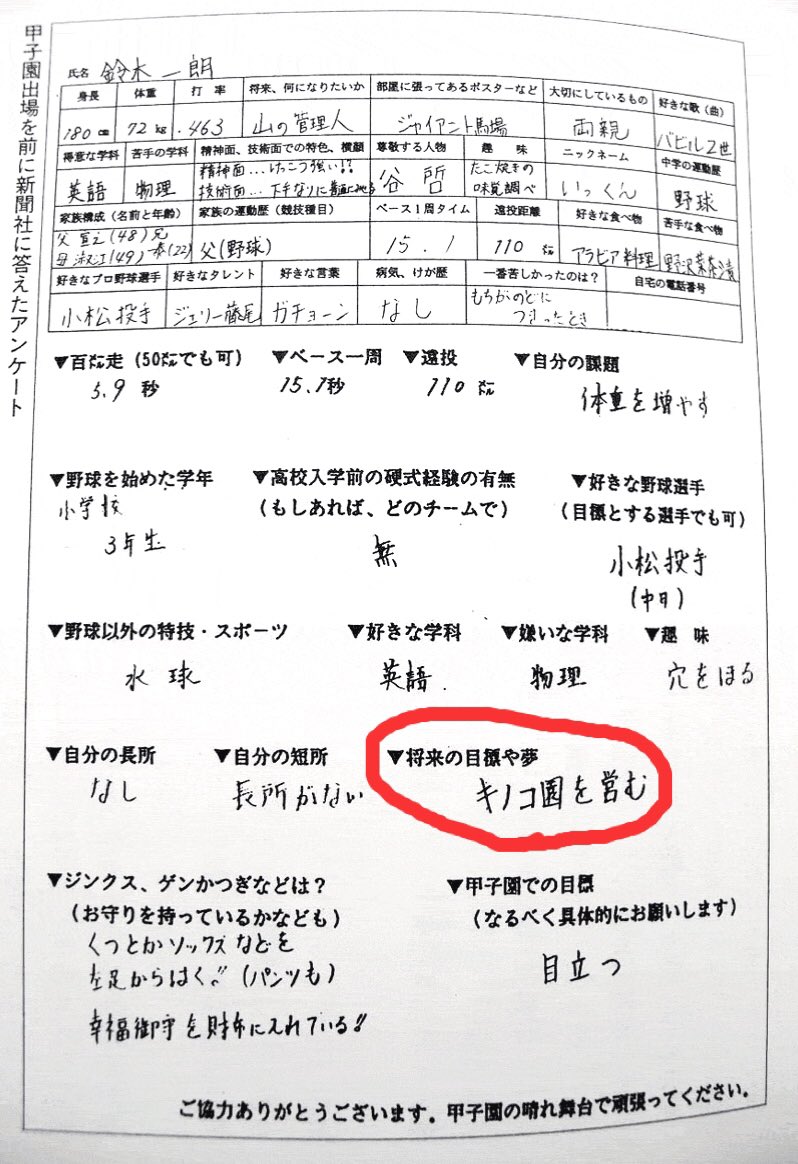 甲子園出場を前に新聞社に答えたアンケート
氏名 鈴木一朗
身長 体重 打率 将来、何になりたいか 部屋に張ってあるポスターなど 大切にしているもの 好きな歌(曲)
180cm 72kg .463 山の管理人 ジャイアント馬場 両親 バビル2世
得意な学科 苦手の学科 精神面、技術面での特色、横顔 尊敬する人物 趣味 ニックネーム 中学の運動歴
英語 物理 精神面…けっこう強い!? 谷 哲 たこ焼きの いっくん 野球
技術面…下手なりに普通にやる 味覚調べ
家族構成(名前と年齢) 家族の運動歴(競技種目) ベース1周タイム 遠投距離 好きな食べ物 苦手な食べ物
父 宣之(48)兄 父(野球) 15.1 110㍍ アラビア料理 野沢菜茶漬
母 淑江(49)一泰(22)
好きなプロ野球選手 好きなタレント 好きな言葉 病気、けが歴 一番苦しかったのは? 自宅の電話番号
小松投手 ジェリー藤尾 ガチョーン なし もちがのどに
つまったとき
▼百㍍走(50㍍でも可) ▼ベース一周 ▼遠投 ▼自分の課題
5.9秒 15.1秒 110㍍ 体重を増やす
▼野球を始めた学年 ▼高校入学前の硬式経験の有無 ▼好きな野球選手
小学校 (もしあれば、どのチームで) (目標とする選手でも可)
3年生 無 小松投手
(中日)
▼野球以外の特技・スポーツ ▼好きな学科 ▼嫌いな学科 ▼趣味
水球 英語 物理 穴をほる
▼自分の長所 ▼自分の短所 ▼将来の目標や夢
なし 長所がない キノコ園を営む
▼ジンクス、ゲンかつぎなどは? ▼甲子園での目標
(お守りを持っているかなども) (なるべく具体的にお願いします)
くつとかソックスなどを 目立つ
左足からはく!!(パンツも)
幸福御守を財布に入れている!!
ご協力ありがとうございます。甲子園の晴れ舞台で頑張ってください。